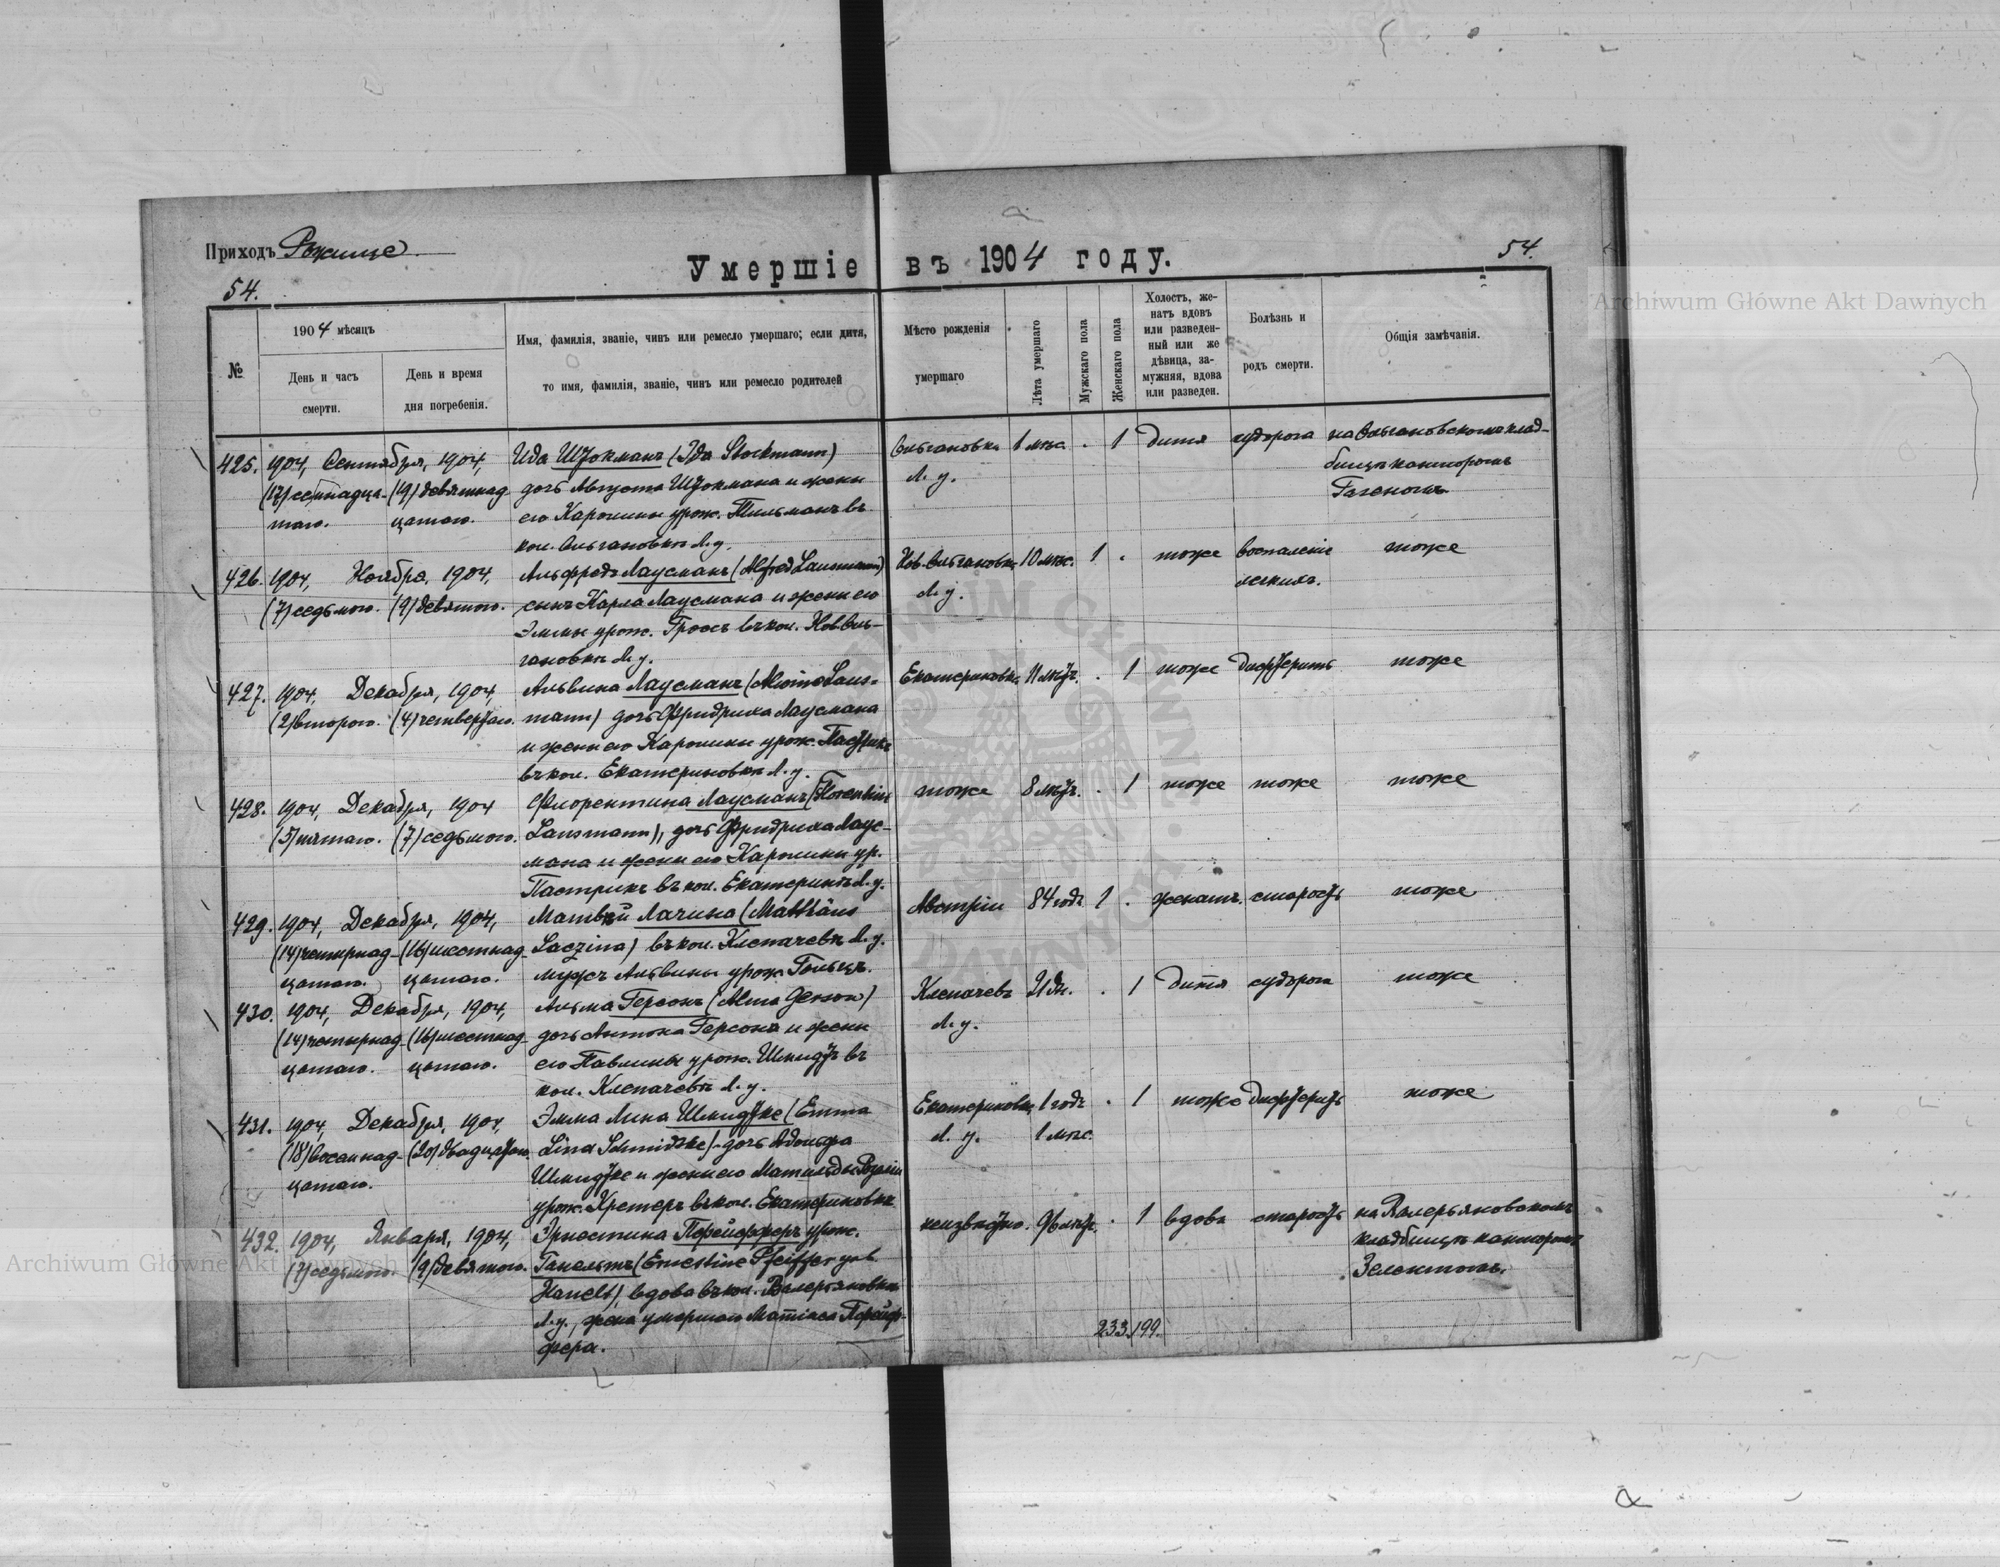 Приходъ Рожище
Умершіе въ 1904 году.
54.
54.
№
1904 мѣсяцъ
День и часъ
смерти.
День и время
дня погребенія.
Имя, фамилія, званіе, чинъ или ремесло умершаго; если дитя,
то имя, фамилія, званіе, чинъ или ремесло родителей
Мѣсто рожденія
умершаго
Лѣта умершаго
Мужскаго пола
Женскаго пола
Холостъ, же-
натъ вдовъ
или разведен-
ный или же
дѣвица, за-
мужняя, вдова
или разведен.
Болѣзнь и
родъ смерти.
Общія замѣчанія.
425. 1904, Сентября, 1904, Ида Штокманъ (Ida Stockmann) 1 мѣс. . 1 дитя судорога на Ольгановскомъ клад-
(17) семнадца- (19) девятнад- дочь Августа Штокмана и жены Л. у. бищѣ канторомъ
таго. цатаго. его Каролины урож. Тильманъ въ
кол. Ольгановкѣ Л. у.
426. 1904, Ноября, 1904, Альфредъ Лаусманъ (Alfred Lausmann) Нов. Ольгановка 10 мѣс. 1 . тоже воспаленіе тоже
(7) седьмого. (9) девятого. сынъ Карла Лаусмана и жены его Л. у. легкихъ.
Эммы урож. Гроссъ въ кол. Нов. Оль-
гановкѣ Л. у.
427. 1904, Декабря, 1904, Альвина Лаусманъ (Alwine Laus- Екатериновка 11 лѣтъ. . 1 тоже дифтеритъ тоже
(2) второго. (4) четвертаго. mann) дочь Фридриха Лаусмана
и жены его Каролины урож. Пастрикъ
въ кол. Екатериновкѣ Л. у.
428. 1904, Декабря, 1904 Флорентина Лаусманъ (Florentine тоже 8 лѣтъ. . 1 тоже тоже тоже
(5) пятаго. (7) седьмого. Lausmann), дочь Фридриха Лаус-
мана и жены его Каролины ур.
Пастрикъ въ кол. Л. у.
429. 1904, Декабря, 1904, Матвѣй Лачина (Matthäus Австріи 84 годъ 1 . женатъ. старость тоже
(14) четырнад- (16) шестнад- Laczina) въ кол. Клепачевѣ Л. у.
цатаго. цатаго. мужъ Альвины урож. Гольцъ.
430. 1904, Декабря, 1904, Альма Герсонъ (Alma Gerson) Клепачевъ 21 дн. . 1 дитя судорога тоже
(14) четырнад- (16) шестнад- дочь Антона Герсона и жены Л. у.
цатаго. цатаго. его Павлины урож. Шмидтъ въ
кол. Клепачевѣ Л. у.
431. 1904, Декабря, 1904, Эмма Лина Шмидтке (Emma Екатериновка 1 годъ . 1 тоже дифтеритъ тоже
(18) восемнад- (20) двадцатаго. Lina Schmidtke) дочь Адольфа Л. у. 1 мѣс.
цатаго. Шмидтке и жены его Матильды Розаліи
урож. Кремеръ въ кол. Екатериновкѣ
432. 1904, Января, 1904, Эрнестина Пфейфферъ урож. неизвѣстно. лѣтъ. . 1 вдова старость на Валерьяновскомъ
(7) седьмого. (9) девятого. Ганельтъ (Ernestine Pfeiffer geb. кладбищѣ канторомъ
Hanelt) вдова въ кол. Валерьяновкѣ
Л. у., жена умершаго Матіаса Пфейф-
фера.
233. 199.
Archiwum Główne Akt Dawnych
Archiwum Główne Akt Dawnych